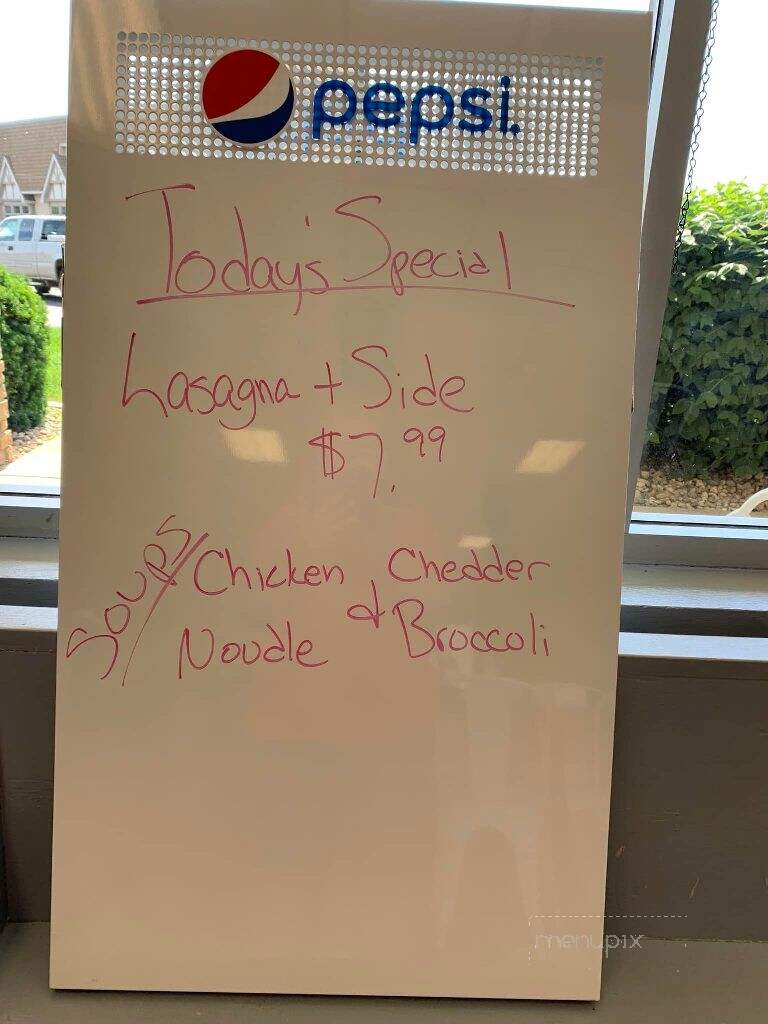 pepsi.
Today's Special
Lasagna + Side
$7.99
Soups/ Chicken Noodle & Chedder Broccoli
menupix